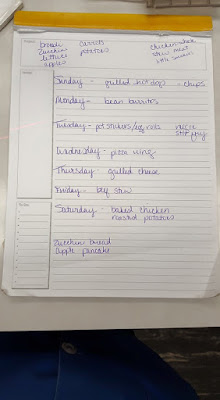 bread carrots chicken - whole
zucchini potatoes stew meat
lettuce little smokies
apples
Sunday - grilled hot dogs - chips
Monday - bean burritos
Tuesday - potstickers/egg rolls
stir fry
Wednesday - pizza wings
Thursday - grilled cheese
Friday - beef stew
Saturday - baked chicken
roasted potatoes
Zucchini bread
Apple pancake